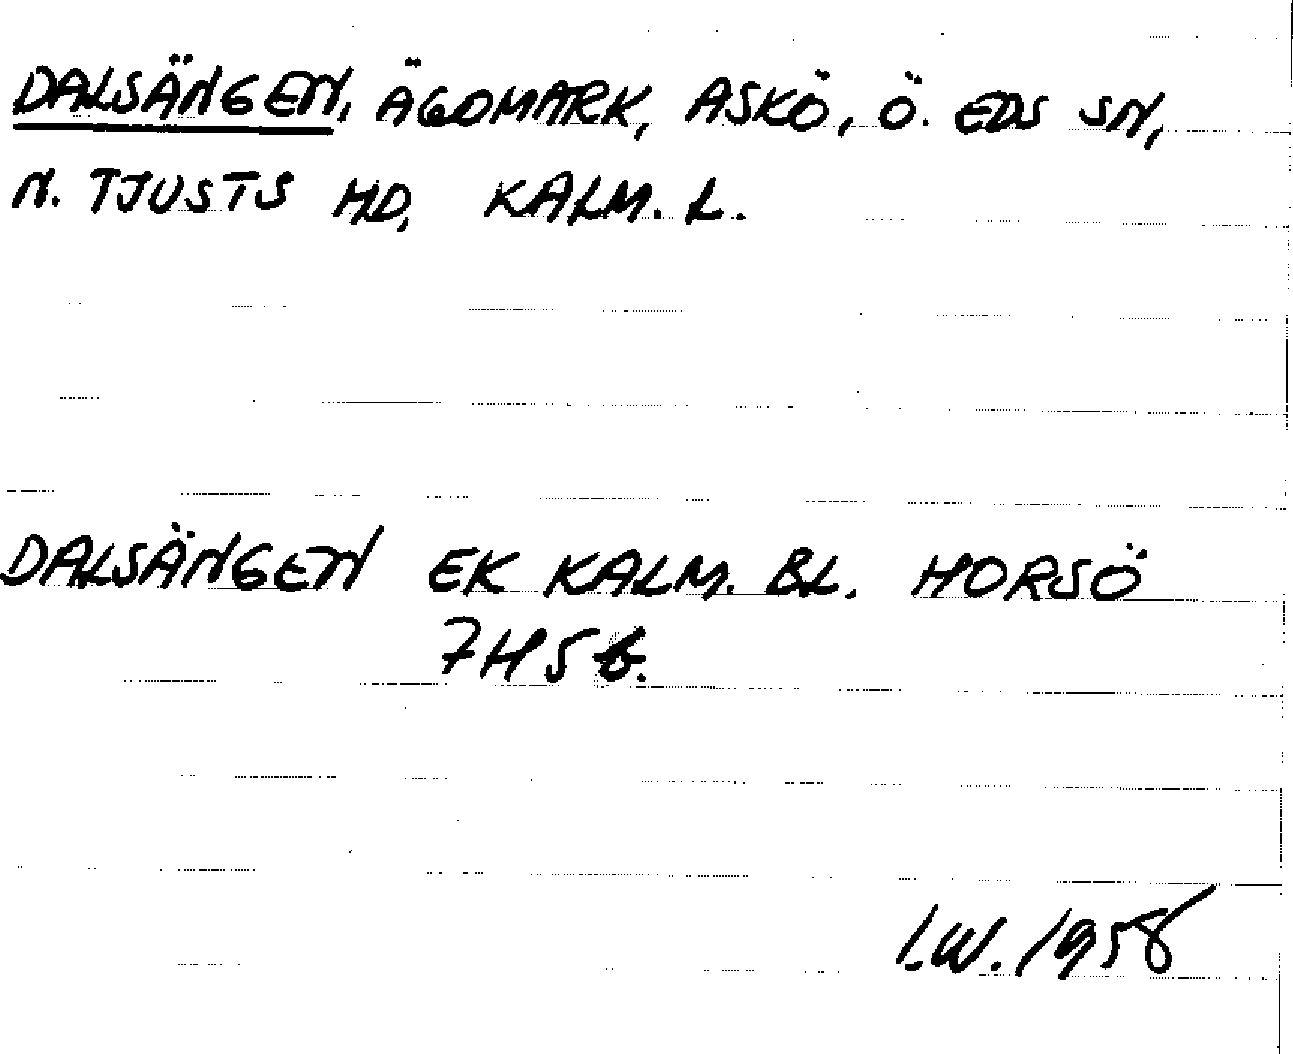 DALSÄNGEN, ÄGOMARK, ASKÖ, Ö. EDS SN,
N. TJUSTS HD, KALM. L.
DALSÄNGEN EK KALM. BL. HORSÖ
7H5b.
I.W. 1958